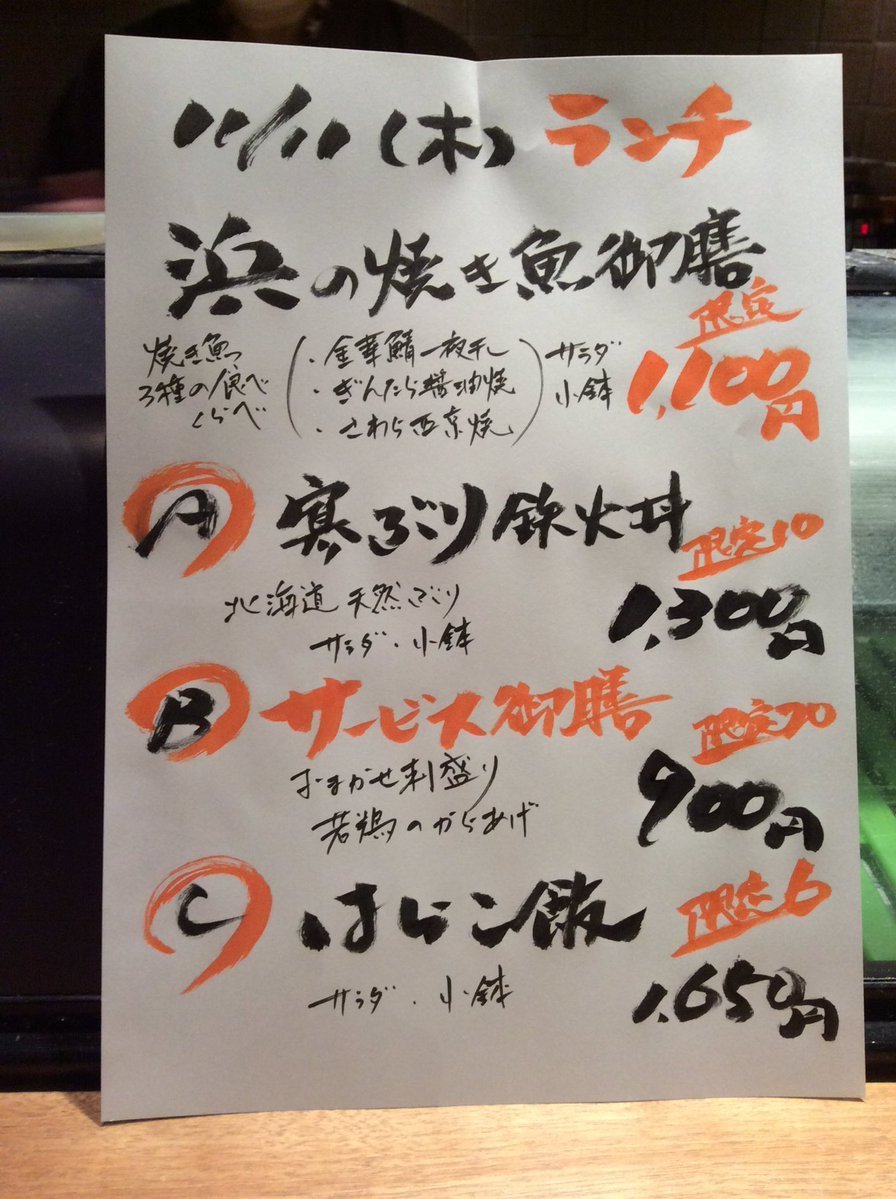 11/11(木)ランチ
浜の焼き魚御膳
限定
1,100円
焼き魚
3種の食べ
くらべ
・金華鯖一夜干し
・ぎんたら醤油焼
・さわら西京焼
サラダ
小鉢
A 寒ぶり鉄火丼
限定10
北海道 天然ぶり
サラダ・小鉢
1,300円
B サービス御膳
限定20
おまかせ刺盛り
若鶏のからあげ
900円
C はらこ飯
限定6
サラダ・小鉢
1,650円